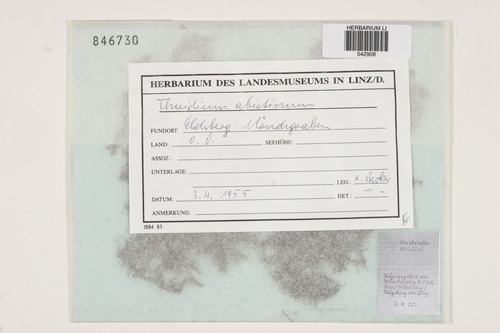 846730
HERBARIUM LI
542908
HERBARIUM DES LANDESMUSEUMS IN LINZ/D.
Thuidium abietinum
FUNDORT: Ebelsberg Mönchgraben
LAND: O.Ö SEEHÖHE:
ASSOZ.:
UNTERLAGE:
LEG.: H. Becker
DATUM: 3.4.1955 DET.: -"-
ANMERKUNG:
I884 83